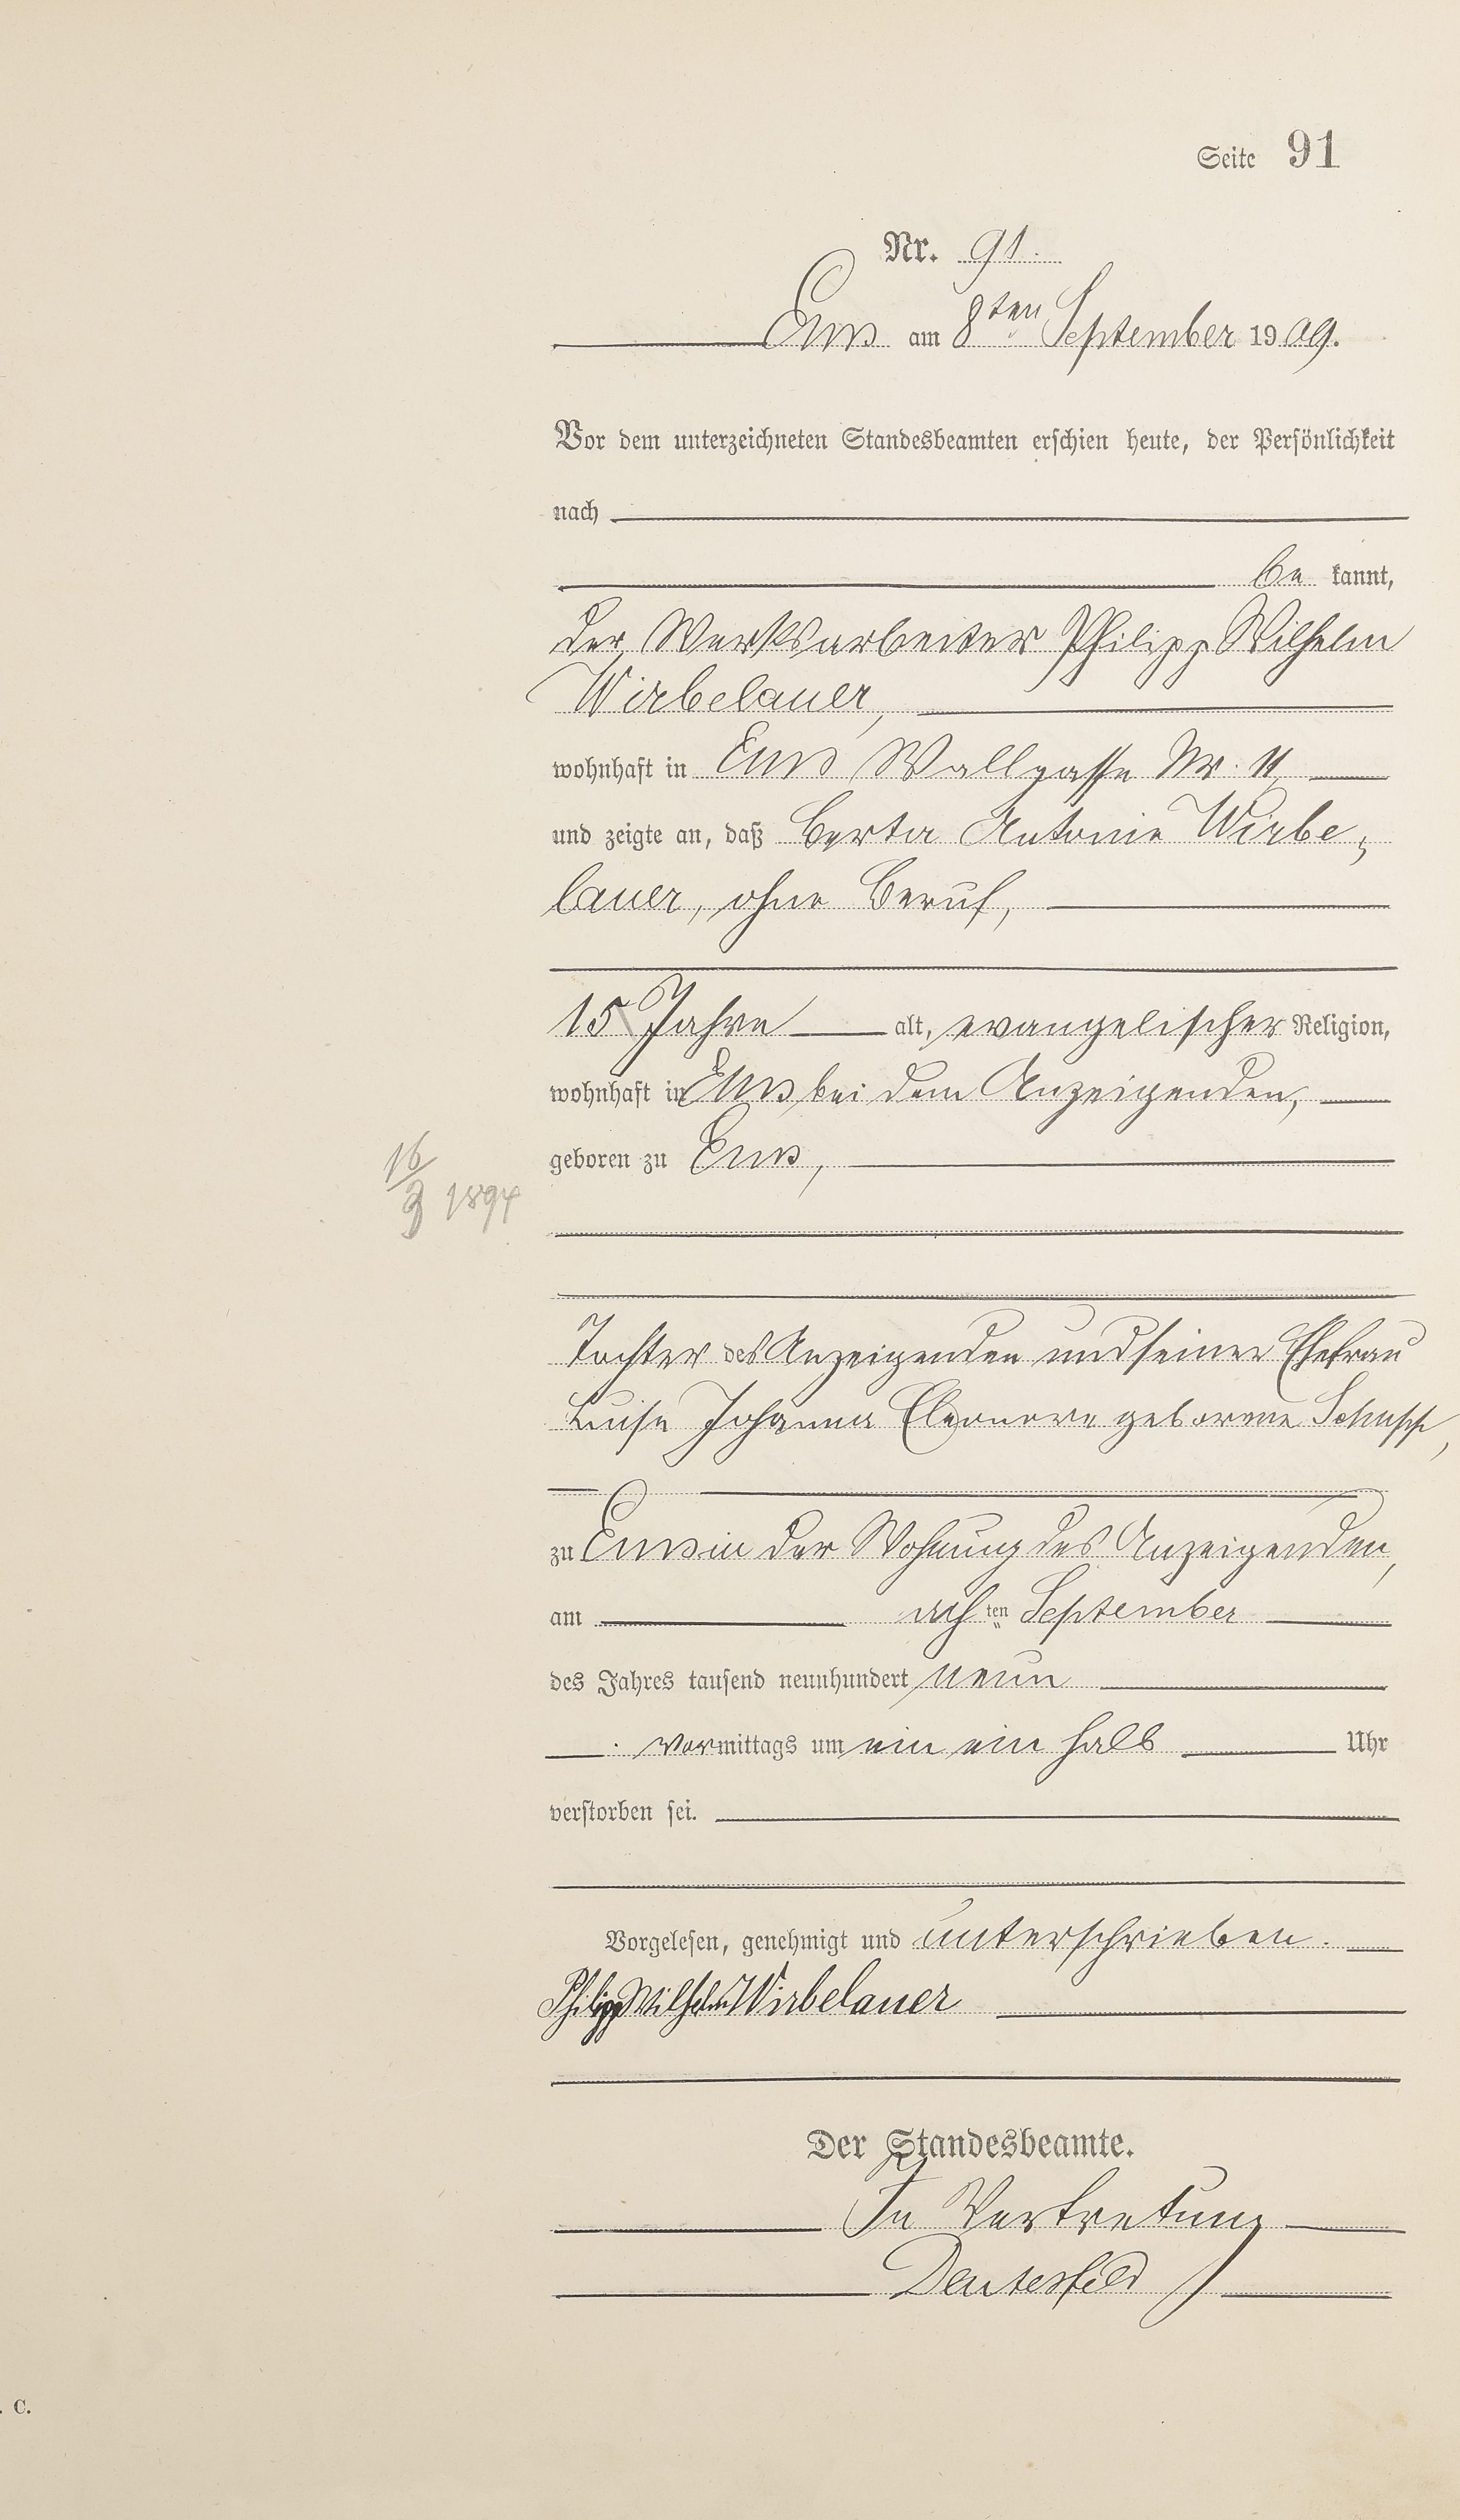 Seite 91
Nr. 91.
Ems am 8ten September 1909.
Vor dem unterzeichneten Standesbeamten erschien heute, der Persönlichkeit
nach
be kannt,
der Werksarbeiter Philipp Wilhelm
Wirbelauer,
wohnhaft in Ems Wallgasse Nr. 11,
und zeigte an, daß Berta Antonie Wirbe-
lauer, ohne Beruf,
15 Jahre alt, evangelischer Religion,
wohnhaft in Ems bei dem Anzeigenden,
geboren zu Ems,
16/3 1894
Tochter des Anzeigenden und seiner Ehefrau
Luise Johanna Eleonore geborene Schupp,
zu Ems in der Wohnung des Anzeigenden,
am achten September
des Jahres tausend neunhundert neun
vormittags um ein ein halb Uhr
verstorben sei.
Vorgelesen, genehmigt und unterschrieben.
Philipp Wilhelm Wirbelauer
Der Standesbeamte.
In Vertretung
. C.